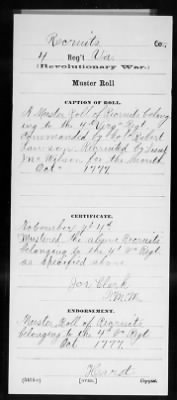 Recruits Co.,
4 Reg't Va.
(Revolutionary War.)
Muster Roll
CAPTION OF ROLL.
A Muster Roll of Recruits belong-
ing to the 4th Virga Regt
Commanded by Col. Robert
Lawson Recruited by
Wilson for the Month
Oct 1777
CERTIFICATE.
November 7th
Mustered the above Recruits
belonging to the 4th Va Regt
as Specified above
Jos Clark
M. M.
ENDORSEMENT.
Muster Roll of Recruits
belonging to the 4th Va Regt
Oct 1777
Hurst
Copyist.